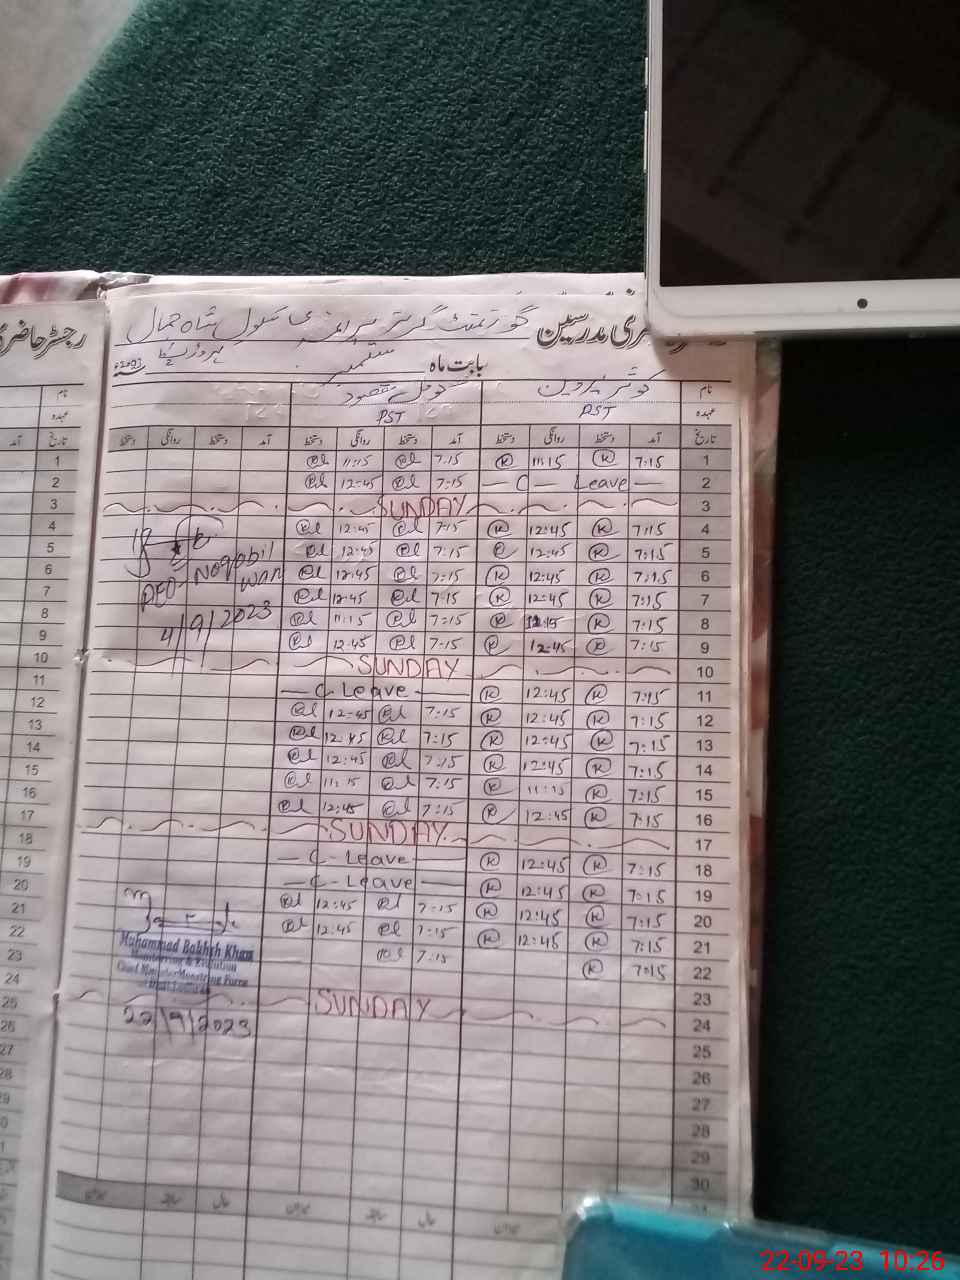 رجسٹر حاضری
حاضری مدرسین گورنمنٹ گرلز پرائمری سکول شاہ جمال
بابت ماہ ستمبر 2023
نام کوثر پروین کومل مقصود
عہدہ PST PST
تاریخ آمد دستخط روانگی دستخط آمد دستخط روانگی دستخط آمد دستخط روانگی دستخط
1 7:15 K 11:15 K 7:15 11:15
2 — C — Leave — 7:15 12:45
3 SUNDAY
4 7:15 K 12:45 K 7:15 12:45
5 7:15 K 12:45 K 7:15 12:45
6 7:15 K 12:45 K 7:15 12:45
7 7:15 K 12:45 K 7:15 12:45
8 7:15 K 11:15 K 7:15 11:15
9 7:15 K 12:45 K 7:15 12:45
10 SUNDAY
11 7:15 K 12:45 K — C Leave —
12 7:15 K 12:45 K 7:15 12:45
13 7:15 K 12:45 K 7:15 12:45
14 7:15 K 12:45 K 7:15 12:45
15 7:15 K 11:15 K 7:15 11:15
16 7:15 K 12:45 K 7:15 12:45
17 SUNDAY
18 7:15 K 12:45 K — C - Leave —
19 7:15 K 12:45 K — C - Leave —
20 7:15 K 12:45 K 7:15 12:45
21 7:15 K 12:45 K 7:15 12:45
22 7:15 K 7:15
23
24 SUNDAY
25
26
27
28
29
30
DEO
4/9/2023
Muhammad Bakhsh Khan
Monitoring & Evaluation
22/9/2023
1
2
3
4
5
6
7
8
9
10
11
12
13
14
15
16
17
18
19
20
21
22
23
24
25
26
27
28
22-09-23 10:26